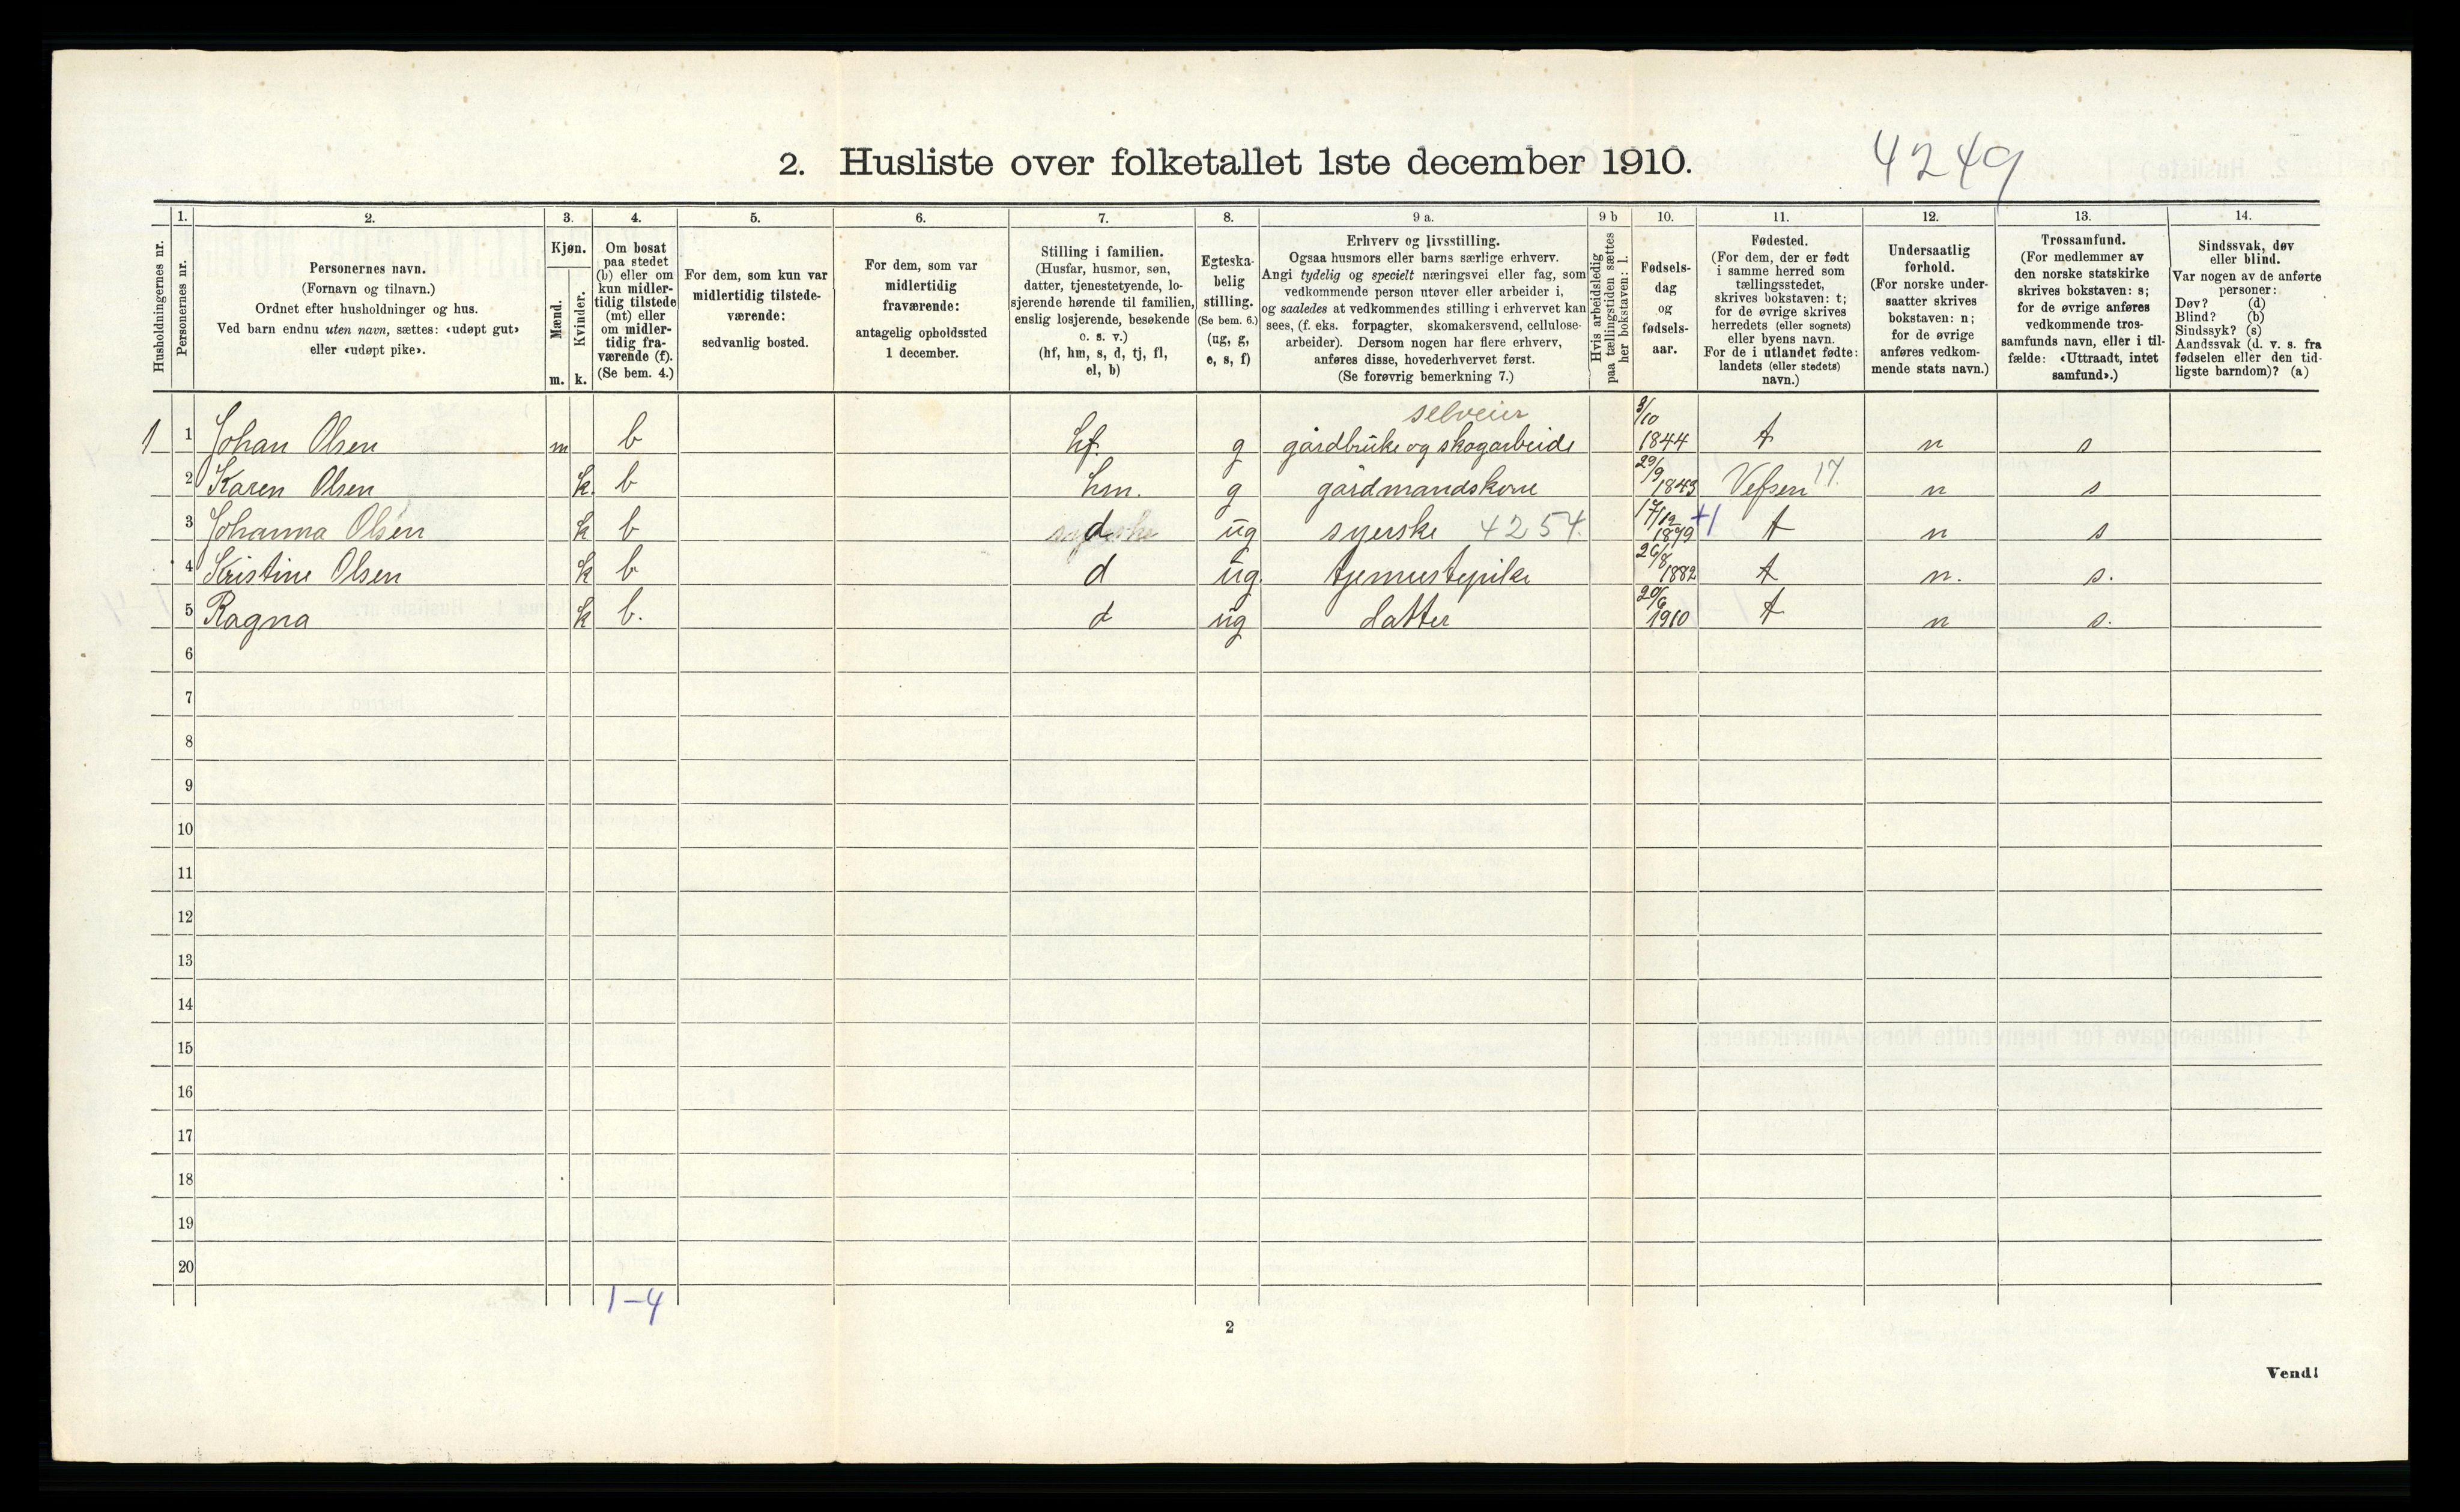 2. Husliste over folketallet 1ste december 1910.
4249
Husholdningernes nr.
1.
Personernes nr.
2.
Personernes navn.
(Fornavn og tilnavn.)
Ordnet efter husholdninger og hus.
Ved barn endnu uten navn, sættes: «udøpt gut»
eller «udøpt pike».
3.
Kjøn.
Mænd.
Kvinder.
m. k.
4.
Om bosat
paa stedet
(b) eller om
kun midler-
tidig tilstede
(mt) eller
om midler-
tidig fra-
værende (f).
(Se bem. 4.)
5.
For dem, som kun var
midlertidig tilstede-
værende:
sedvanlig bosted.
6.
For dem, som var
midlertidig
fraværende:
antagelig opholdssted
1 december.
7.
Stilling i familien.
(Husfar, husmor, søn,
datter, tjenestetyende, lo-
sjerende hørende til familien,
enslig losjerende, besøkende
o. s. v.)
(hf, hm, s, d, tj, fl,
el, b)
8.
Egteska-
belig
stilling.
(Se bem. 6.)
(ug, g,
e, s, f)
9 a.
Erhverv og livsstilling.
Ogsaa husmors eller barns særlige erhverv.
Angi tydelig og specielt næringsvei eller fag, som
vedkommende person utøver eller arbeider i,
og saaledes at vedkommendes stilling i erhvervet kan
sees, (f. eks. forpagter, skomakersvend, cellulose-
arbeider). Dersom nogen har flere erhverv,
anføres disse, hovederhvervet først.
(Se forøvrig bemerkning 7.)
9 b
Hvis arbeidsledig
paa tællingstiden sættes
her bokstaven: l.
10.
Fødsels-
dag
og
fødsels-
aar.
11.
Fødested.
(For dem, der er født
i samme herred som
tællingsstedet,
skrives bokstaven: t;
for de øvrige skrives
herredets (eller sognets)
eller byens navn.
For de i utlandet fødte:
landets (eller stedets)
navn.)
12.
Undersaatlig
forhold.
(For norske under-
saatter skrives
bokstaven: n;
for de øvrige
anføres vedkom-
mende stats navn.)
13.
Trossamfund.
(For medlemmer av
den norske statskirke
skrives bokstaven: s;
for de øvrige anføres
vedkommende tros-
samfunds navn, eller i til-
fælde: «Uttraadt, intet
samfund».)
14.
Sindssvak, døv
eller blind.
Var nogen av de anførte
personer:
Døv? (d)
Blind? (b)
Sindssyk? (s)
Aandssvak (d. v. s. fra
fødselen eller den tid-
ligste barndom)? (a)
selveier
1 1 Johan Olsen m b hf. g gårdbruke og skogarbeide 3/10 1844 t n s
2 Karen Olsen k. b hm. g gårdmandskone 29/9 1843 Vefsen 17. n s
3 Johanna Olsen k b d ug syerske 4254. 17/12 1879 +1 t n s
4 Kristine Olsen k b d ug. tjennestepike 26/8 1882 t n. s.
5 Ragna k b. d ug datter 20/6 1910 t n s.
6
7
8
9
10
11
12
13
14
15
16
17
18
19
20
1-4
2
Vend!